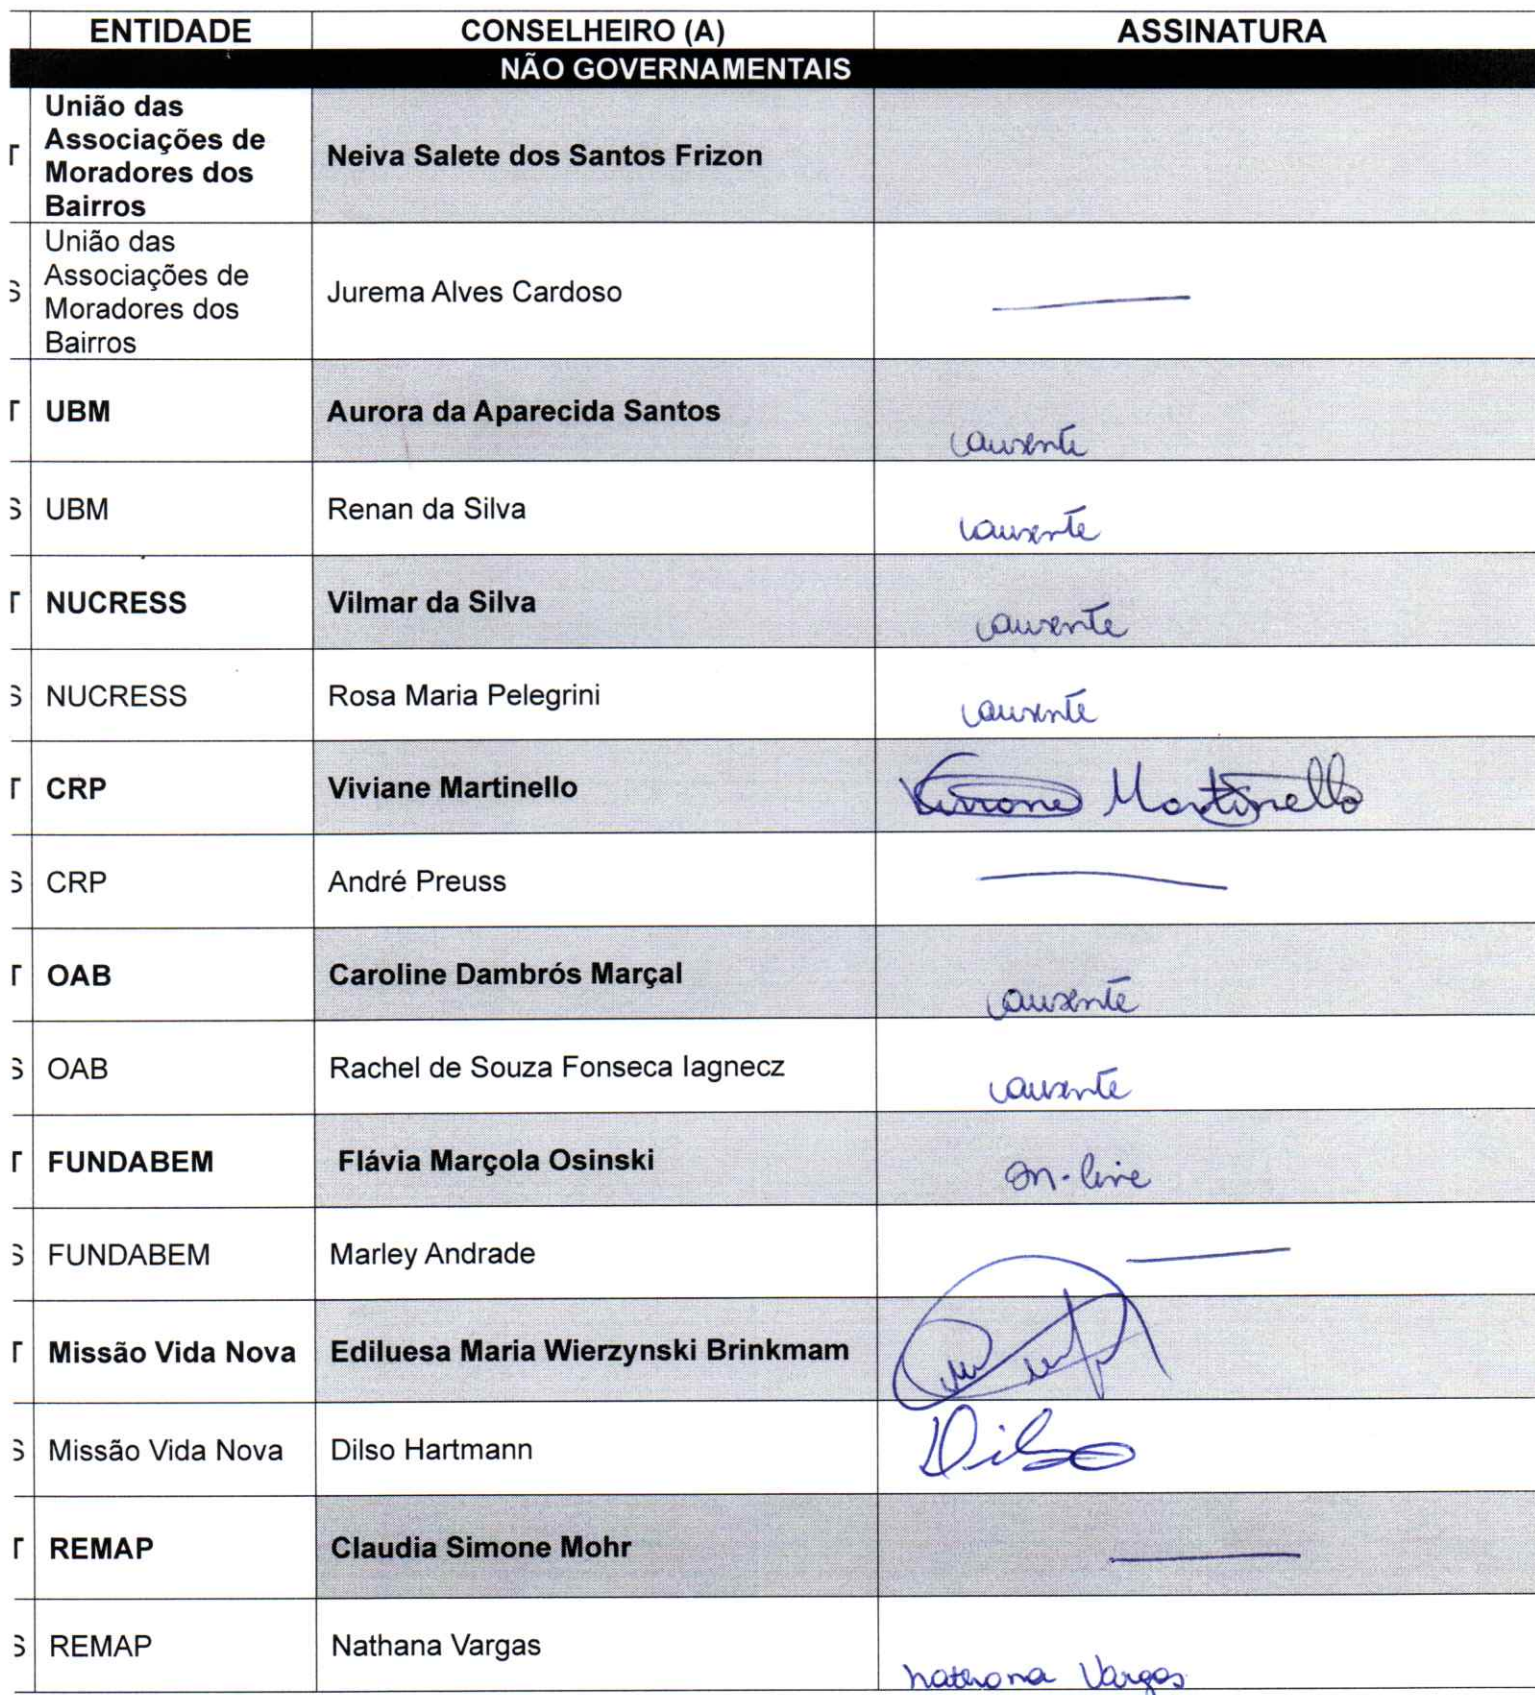 ENTIDADE CONSELHEIRO (A) ASSINATURA
NÃO GOVERNAMENTAIS
União das
Associações de
T Moradores dos Neiva Salete dos Santos Frizon
Bairros
União das
Associações de
S Moradores dos Jurema Alves Cardoso
Bairros
T UBM Aurora da Aparecida Santos ausente
S UBM Renan da Silva ausente
T NUCRESS Vilmar da Silva ausente
S NUCRESS Rosa Maria Pelegrini ausente
T CRP Viviane Martinello Martinello
S CRP André Preuss
T OAB Caroline Dambrós Marçal ausente
S OAB Rachel de Souza Fonseca Iagnecz ausente
T FUNDABEM Flávia Marçola Osinski on-line
S FUNDABEM Marley Andrade
T Missão Vida Nova Ediluesa Maria Wierzynski Brinkmam
S Missão Vida Nova Dilso Hartmann Dilso
T REMAP Claudia Simone Mohr
S REMAP Nathana Vargas Nathana Vargas